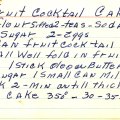 ruit Cocktail Cake
lour sifted-teas-soda
Sugar 2-Eggs
Can Fruit Cocktail
all well fold in fruit
1 stick oleo or Butter
ugar 1 small can Mil
k 2-min until thick
Cake 350°-30-35-